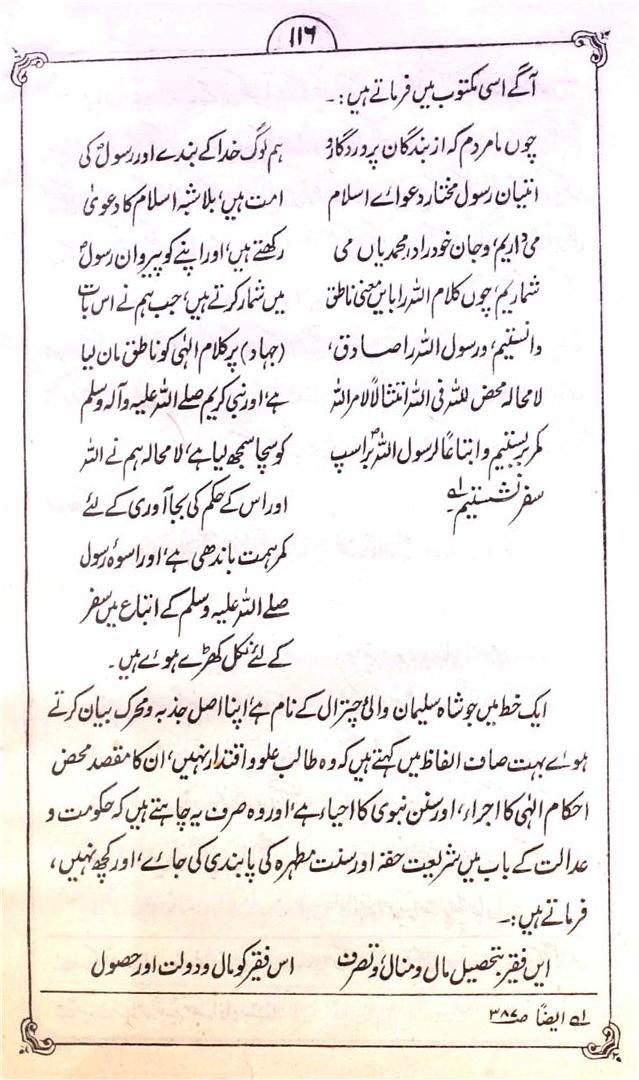 ۱۱۶
آگے اسی مکتوب میں فرماتے ہیں:۔
چوں ما مردم کہ از بندگان پروردگار و
امتیان رسول مختار دعوائے اسلام
می داریم، و جان خود را در محمدیاں می
شماریم، چوں کلام اللہ را باین معنی ناطق
دانستیم، و رسول اللہ را صادق،
لا محالہ محض للہ فی اللہ امتثالاً لامر اللہ
کمر بستیم و اتباعاً لرسول اللہؐ بر اسپ
سفر نشستیم۔ لے
ہم لوگ خدا کے بندے اور رسولؐ کی
امت ہیں، بلاشبہ اسلام کا دعویٰ
رکھتے ہیں، اور اپنے کو پیروان رسولؐ
میں شمار کرتے ہیں، جب ہم نے اس بات
(جہاد) پر کلام الٰہی کو ناطق مان لیا
ہے، اور نبی کریم صلے اللہ علیہ وآلہ وسلم
کو سچا سمجھ لیا ہے، لا محالہ ہم نے اللہ
اور اس کے حکم کی بجا آوری کے لئے
کمر ہمت باندھی ہے، اور اسوۂ رسول
صلے اللہ علیہ وسلم کے اتباع میں سفر
کے لئے نکل کھڑے ہوئے ہیں۔
ایک خط میں جو شاہ سلیمان والئ چترال کے نام ہے، اپنا اصل جذبہ و محرک بیان کرتے
ہوئے بہت صاف الفاظ میں کہتے ہیں کہ وہ طالب علو و اقتدار نہیں، ان کا مقصد محض
احکام الٰہی کا اجراء، اور سنن نبوی کا احیاء ہے، اور وہ صرف یہ چاہتے ہیں کہ حکومت و
عدالت کے باب میں شریعت حقہ اور سنت مطہرہ کی پابندی کی جائے، اور کچھ نہیں،
فرماتے ہیں:۔
ایں فقیر بتحصیل مال و منال، و تصرف
اس فقیر کو مال و دولت اور حصول
لے ایضاً ص۳۸۷